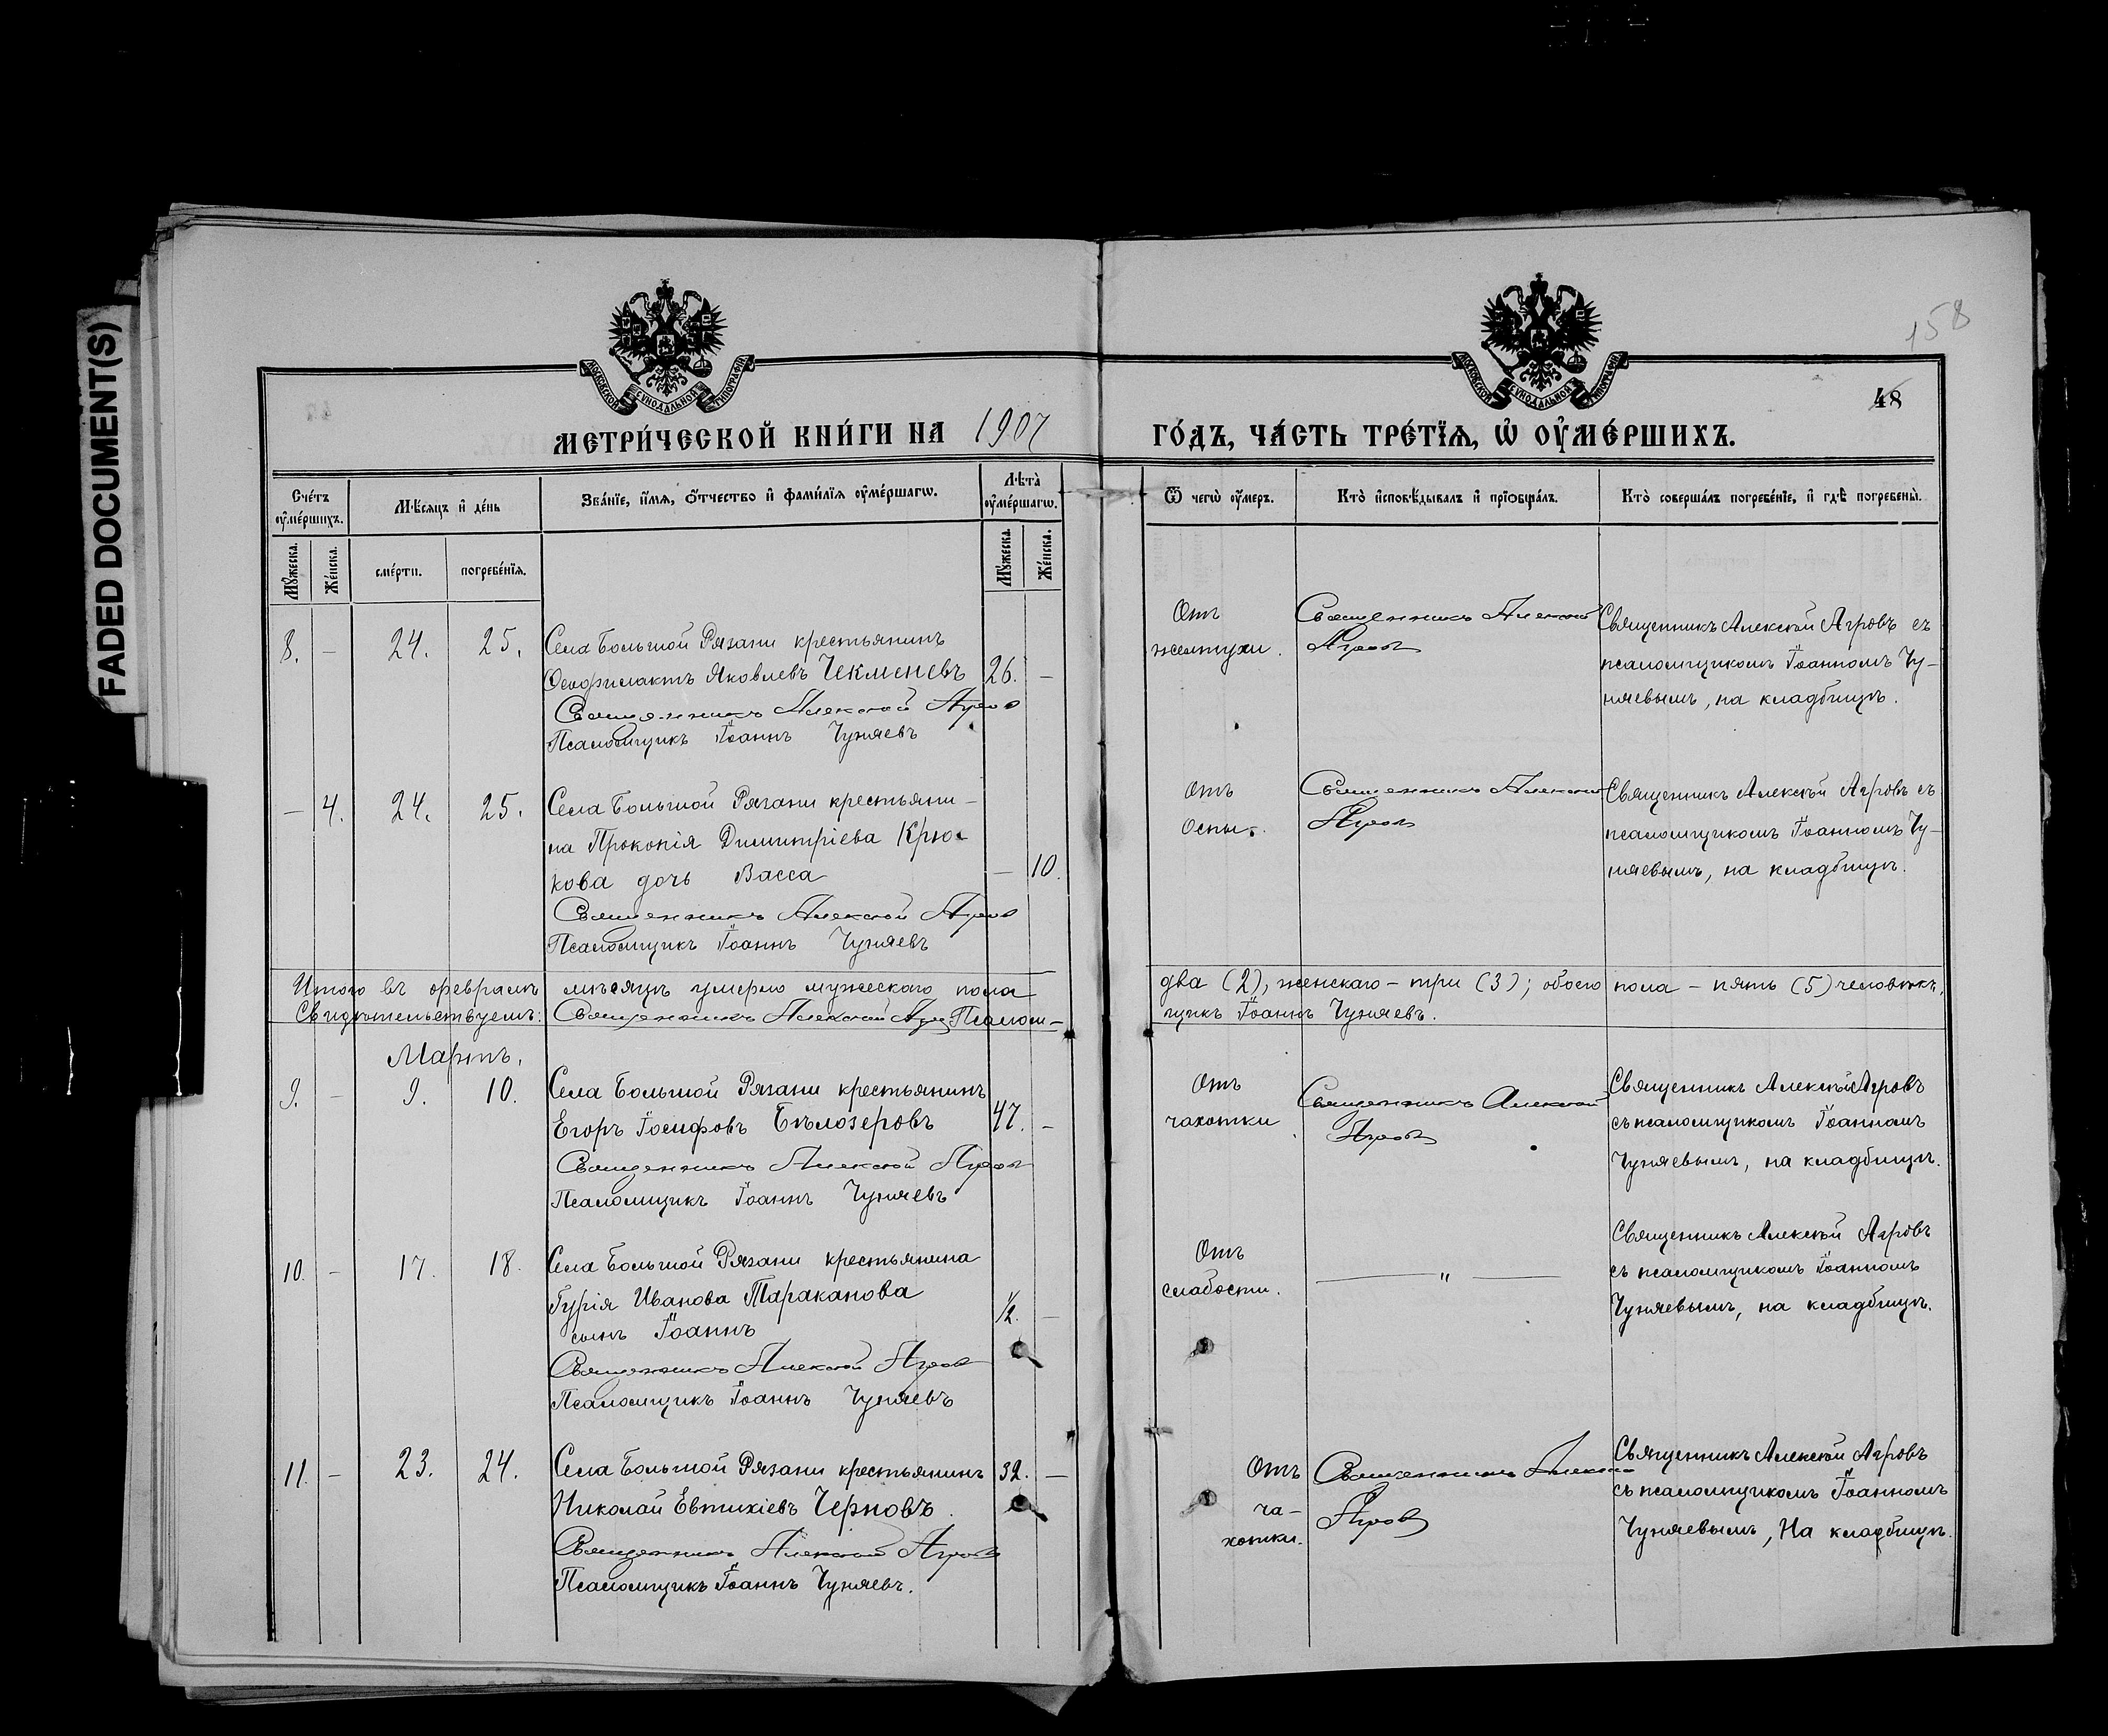 FADED DOCUMENT(S)
158
48
МОСКОВСКОЙ СѴНОДАЛЬНОЙ ТИПОГРАФІИ
МОСКОВСКОЙ СѴНОДАЛЬНОЙ ТИПОГРАФІИ
МЕТРИ́ЧЕСКОЙ КНИ́ГИ НА 1907 ГО́ДЪ, ЧА́СТЬ ТРЕ́ТЇѦ, Ѡ҆ ОУ҆МЕ́РШИХЪ.
Сче́тъ оу҆ме́ршихъ.
Мѣ́сяцъ и҆ де́нь
Зва́нїе, и҆́мѧ, ѻ҆́тчество и҆ фами́лїѧ оу҆ме́ршагѡ.
Лѣта̀ оу҆ме́ршагѡ.
Ѿ чегѡ̀ оу҆́меръ.
Кто̀ и҆сповѣ́дывалъ и҆ прїѡбща́лъ.
Кто̀ соверша́лъ погребе́нїе, и҆ гдѣ̀ погребены̀.
Мꙋ́жеска.
Же́нска.
сме́рти.
погребе́нїѧ.
Мꙋ́жеска.
Же́нска.
8. – 24. 25. Села Большой Рязани крестьянинъ
Ѳеофилактъ Яковлевъ Чекменевъ 26. –
Священникъ Алексѣй Агровъ
Псаломщикъ Іоаннъ Чуняевъ
Отъ
желтухи.
Священникъ Алексѣй
Агровъ
Священникъ Алексѣй Агровъ съ
псаломщикомъ Іоанномъ Чу-
няевымъ, на кладбищѣ.
– 4. 24. 25. Села Большой Рязани крестьяни-
на Прокопія Димитріева Крю-
кова дочь Васса – 10.
Священникъ Алексѣй Агровъ
Псаломщикъ Іоаннъ Чуняевъ
Отъ
оспы.
Священникъ Алексѣй
Агровъ
Священникъ Алексѣй Агровъ съ
псаломщикомъ Іоанномъ Чу-
няевымъ, на кладбищѣ.
Итого въ февралѣ мѣсяцѣ умерло мужескаго пола два (2), женскаго – три (3); обоего пола – пять (5) человѣкъ.
Свидѣтельствуемъ: Священникъ Алексѣй Агровъ Псалом-
щикъ Іоаннъ Чуняевъ.
Мартъ.
9. – 9. 10. Села Большой Рязани крестьянинъ
Егоръ Іосифовъ Бѣлозеровъ 47. –
Священникъ Алексѣй Агровъ
Псаломщикъ Іоаннъ Чуняевъ
Отъ
чахотки
Священникъ Алексѣй
Агровъ
Священникъ Алексѣй Агровъ
съ псаломщикомъ Іоанномъ
Чуняевымъ, на кладбищѣ.
10. – 17. 18. Села Большой Рязани крестьянина
Гурія Иванова Тараканова
сынъ Іоаннъ 1/2. –
Священникъ Алексѣй Агровъ
Псаломщикъ Іоаннъ Чуняевъ
Отъ
слабости.
— " —
Священникъ Алексѣй Агровъ
съ псаломщикомъ Іоанномъ
Чуняевымъ, на кладбищѣ.
11. – 23. 24. Села Большой Рязани крестьянинъ 32. –
Николай Евтихіевъ Черновъ.
Священникъ Алексѣй Агровъ
Псаломщикъ Іоаннъ Чуняевъ.
Отъ
ча-
хотки.
Священникъ Алексѣй
Агровъ
Священникъ Алексѣй Агровъ
съ псаломщикомъ Іоанномъ
Чуняевымъ, На кладбищѣ.